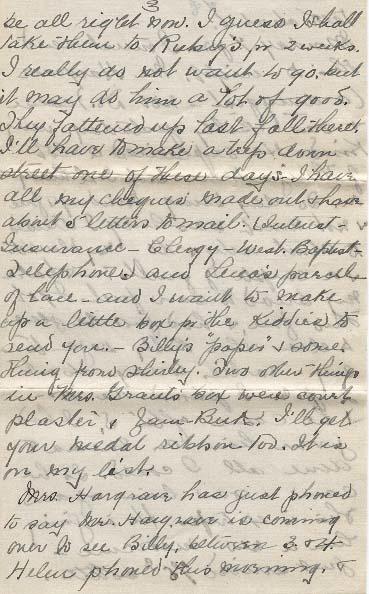 3
be all right now. I guess I shall
take them to Ruby's in 2 weeks.
I really do not want to go, but
it may do him a lot of good.
They fattened up last fall there.
I'll have to make a trip down
street one of these days - I have
all my cheques made out & have
about 5 letters to mail. (Interest -
Insurance - Clergy - West. Baptist -
Telephone) and parcel
of lace - and I want to make
up a little box for the Kiddies to
send you. - Billy's "paper" & some
thing from Shirley. Two other things
in Mrs. Grant's box were court
plaster, & Zam-Buk. I'll get
your medal ribbon too. It is
on my list.
Mrs. Hargrave has just phoned
to say Mr. Hargrave is coming
over to see Billy, between 3 & 4.
Helen phoned this morning. &